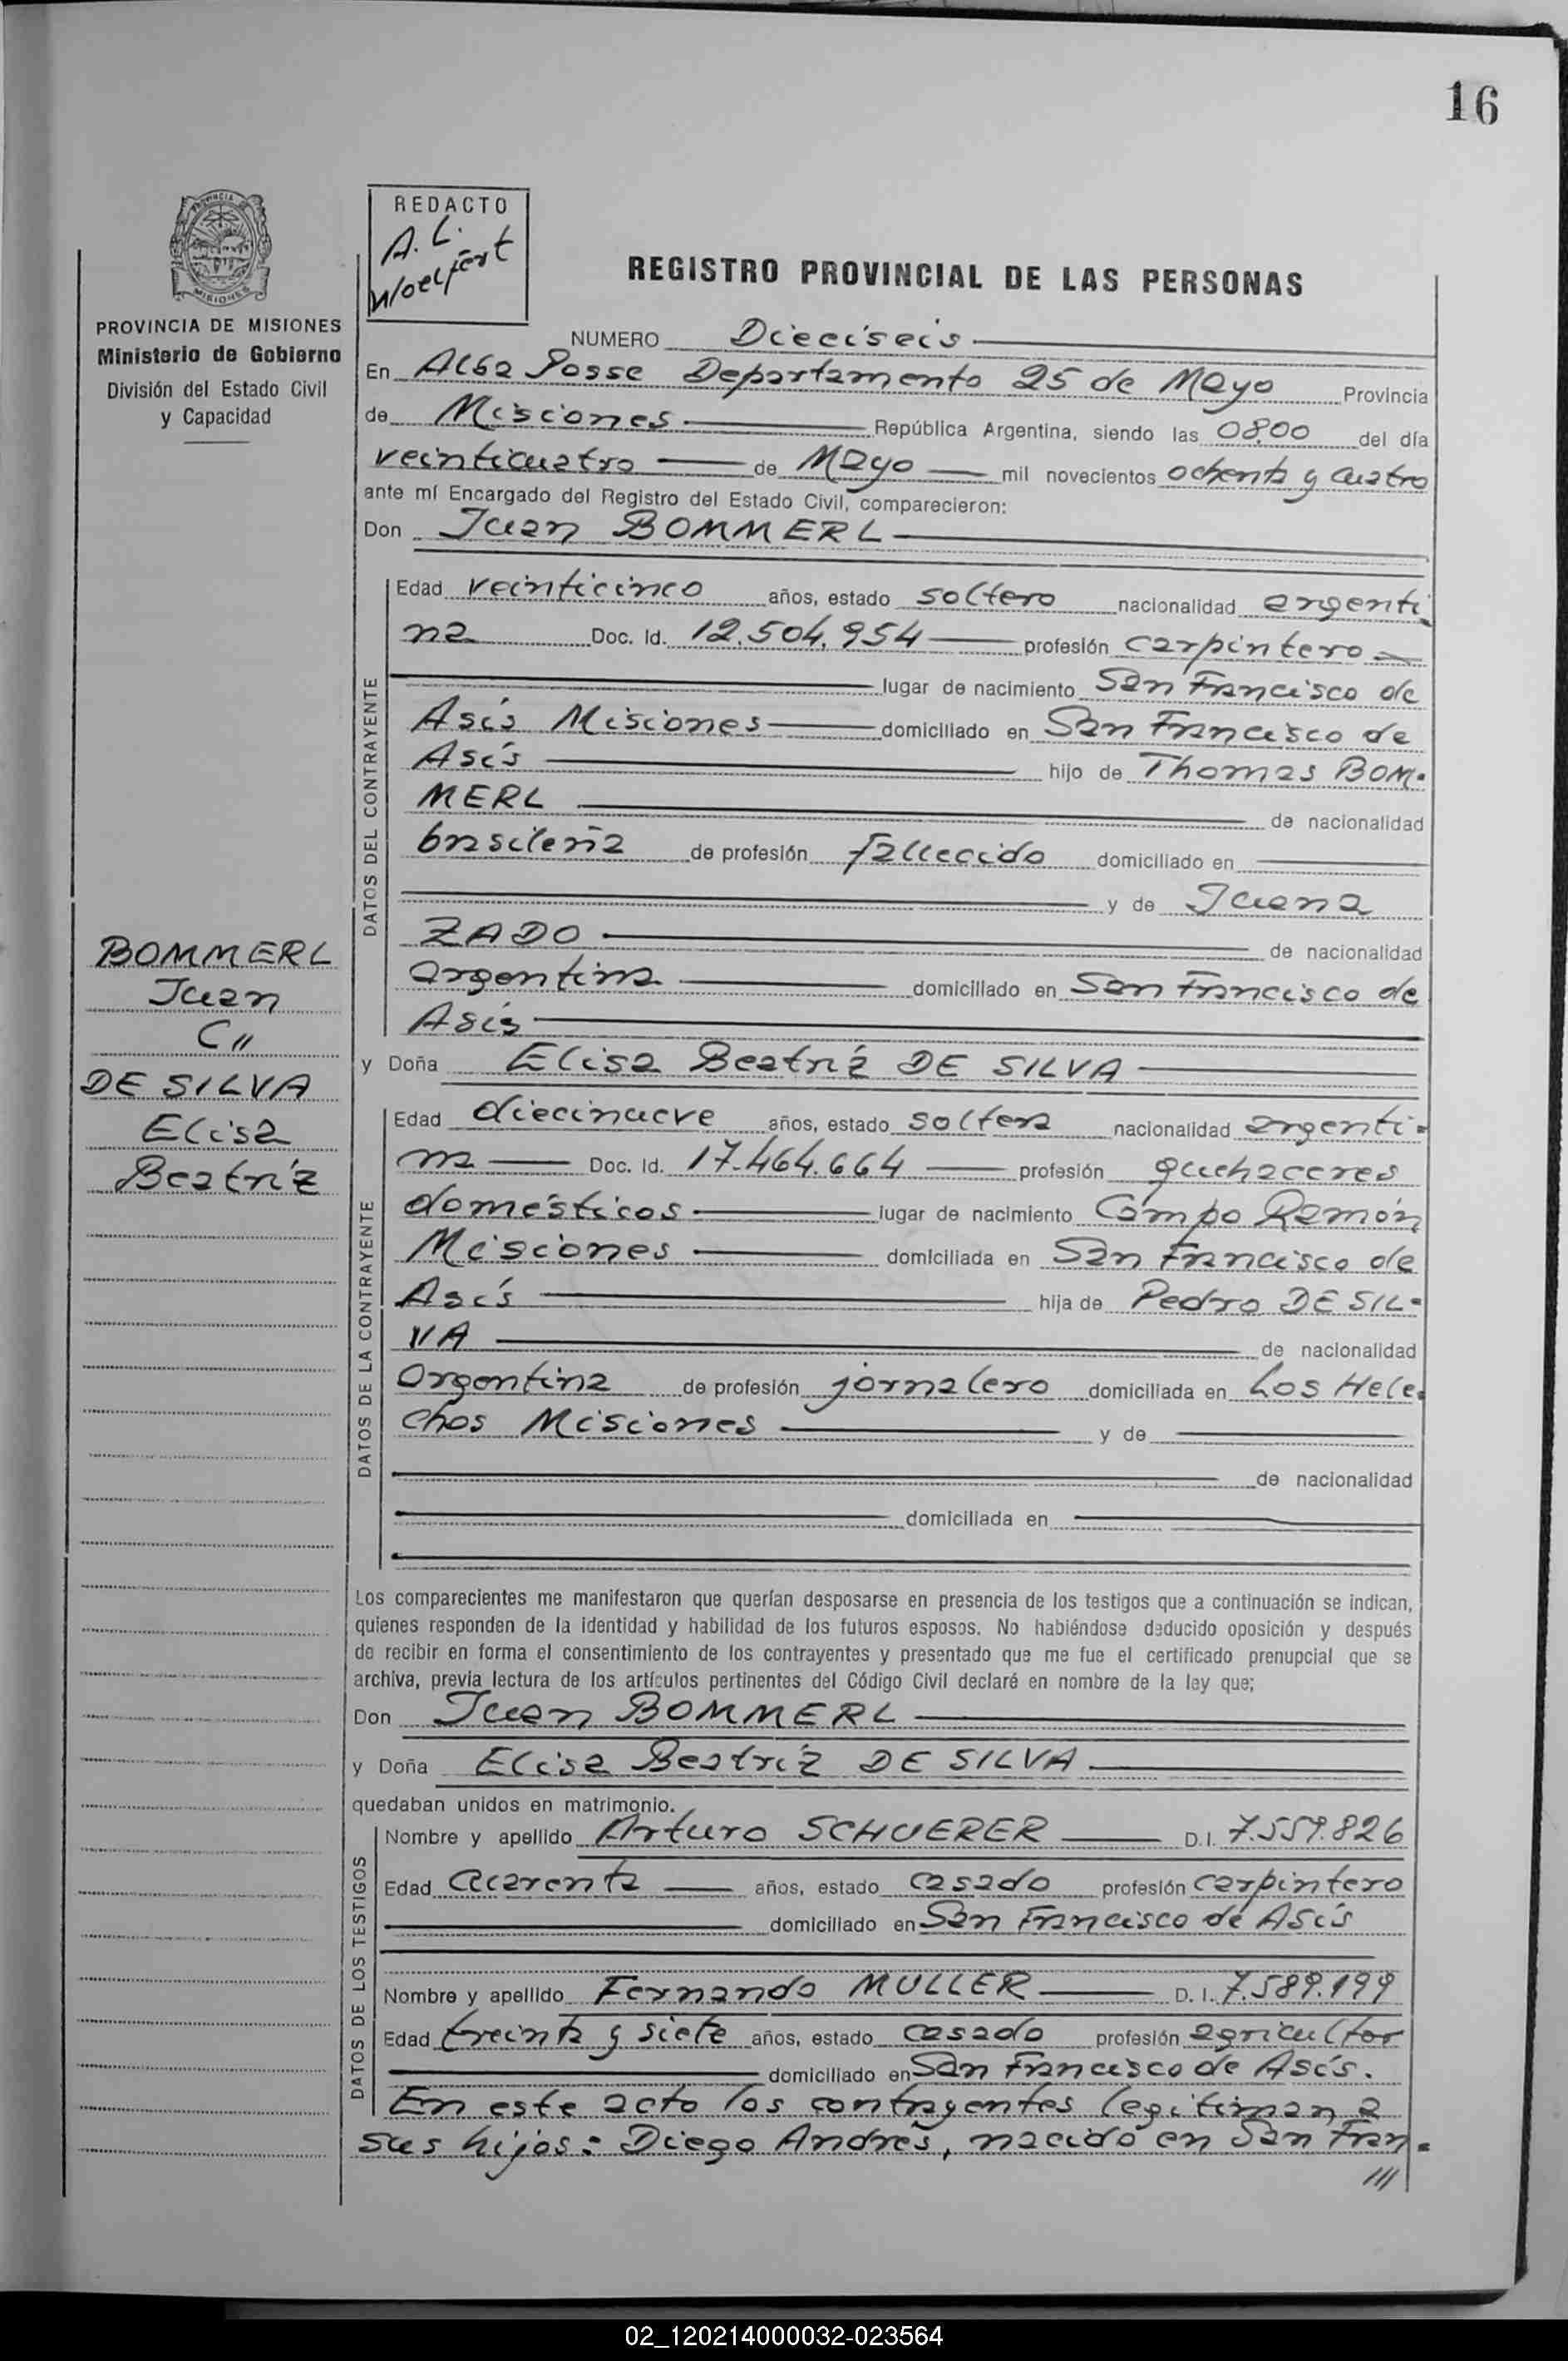 16
PROVINCIA DE MISIONES
Ministerio de Gobierno
División del Estado Civil
y Capacidad
REDACTO
A. L.
Woelfert
REGISTRO PROVINCIAL DE LAS PERSONAS
NUMERO Dieciseis
En Alba Posse Departamento 25 de Mayo Provincia
de Misiones República Argentina, siendo las 0800 del día
veinticuatro de Mayo mil novecientos ochenta y cuatro
ante mí Encargado del Registro del Estado Civil, comparecieron:
Don Juan BOMMERL
DATOS DEL CONTRAYENTE
Edad veinticinco años, estado soltero nacionalidad argenti
na Doc. Id. 12.504.954 profesión carpintero
lugar de nacimiento San Francisco de
Asís Misiones domiciliado en San Francisco de
Asís hijo de Thomas BOM-
MERL de nacionalidad
brasileña de profesión fallecido domiciliado en
y de Juana
ZADO de nacionalidad
argentina domiciliado en San Francisco de
Asís
y Doña Elisa Beatríz DE SILVA
BOMMERL
Juan
C//
DE SILVA
Elisa
Beatríz
DATOS DE LA CONTRAYENTE
Edad diecinueve años, estado soltera nacionalidad argenti-
na Doc. Id. 17.464.664 profesión quehaceres
domésticos lugar de nacimiento Campo Ramón
Misiones domiciliada en San Francisco de
Asís hija de Pedro DE SIL-
VA de nacionalidad
Argentina de profesión jornalero domiciliada en Los Hele-
chos Misiones y de
de nacionalidad
domiciliada en
Los comparecientes me manifestaron que querían desposarse en presencia de los testigos que a continuación se indican,
quienes responden de la identidad y habilidad de los futuros esposos. No habiéndose deducido oposición y después
de recibir en forma el consentimiento de los contrayentes y presentado que me fue el certificado prenupcial que se
archiva, previa lectura de los artículos pertinentes del Código Civil declaré en nombre de la ley que;
Don Juan BOMMERL
y Doña Elisa Beatríz DE SILVA
quedaban unidos en matrimonio.
DATOS DE LOS TESTIGOS
Nombre y apellido Arturo SCHUERER D.I. 7.559.826
Edad cuarenta años, estado casado profesión carpintero
domiciliado en San Francisco de Asís
Nombre y apellido Fernando MULLER D.I. 7.589.199
Edad treinta y siete años, estado casado profesión agricultor
domiciliado en San Francisco de Asís.
En este acto los contrayentes legitiman a
sus hijos: Diego Andrés, nacido en San Fran-
///
02_120214000032-023564